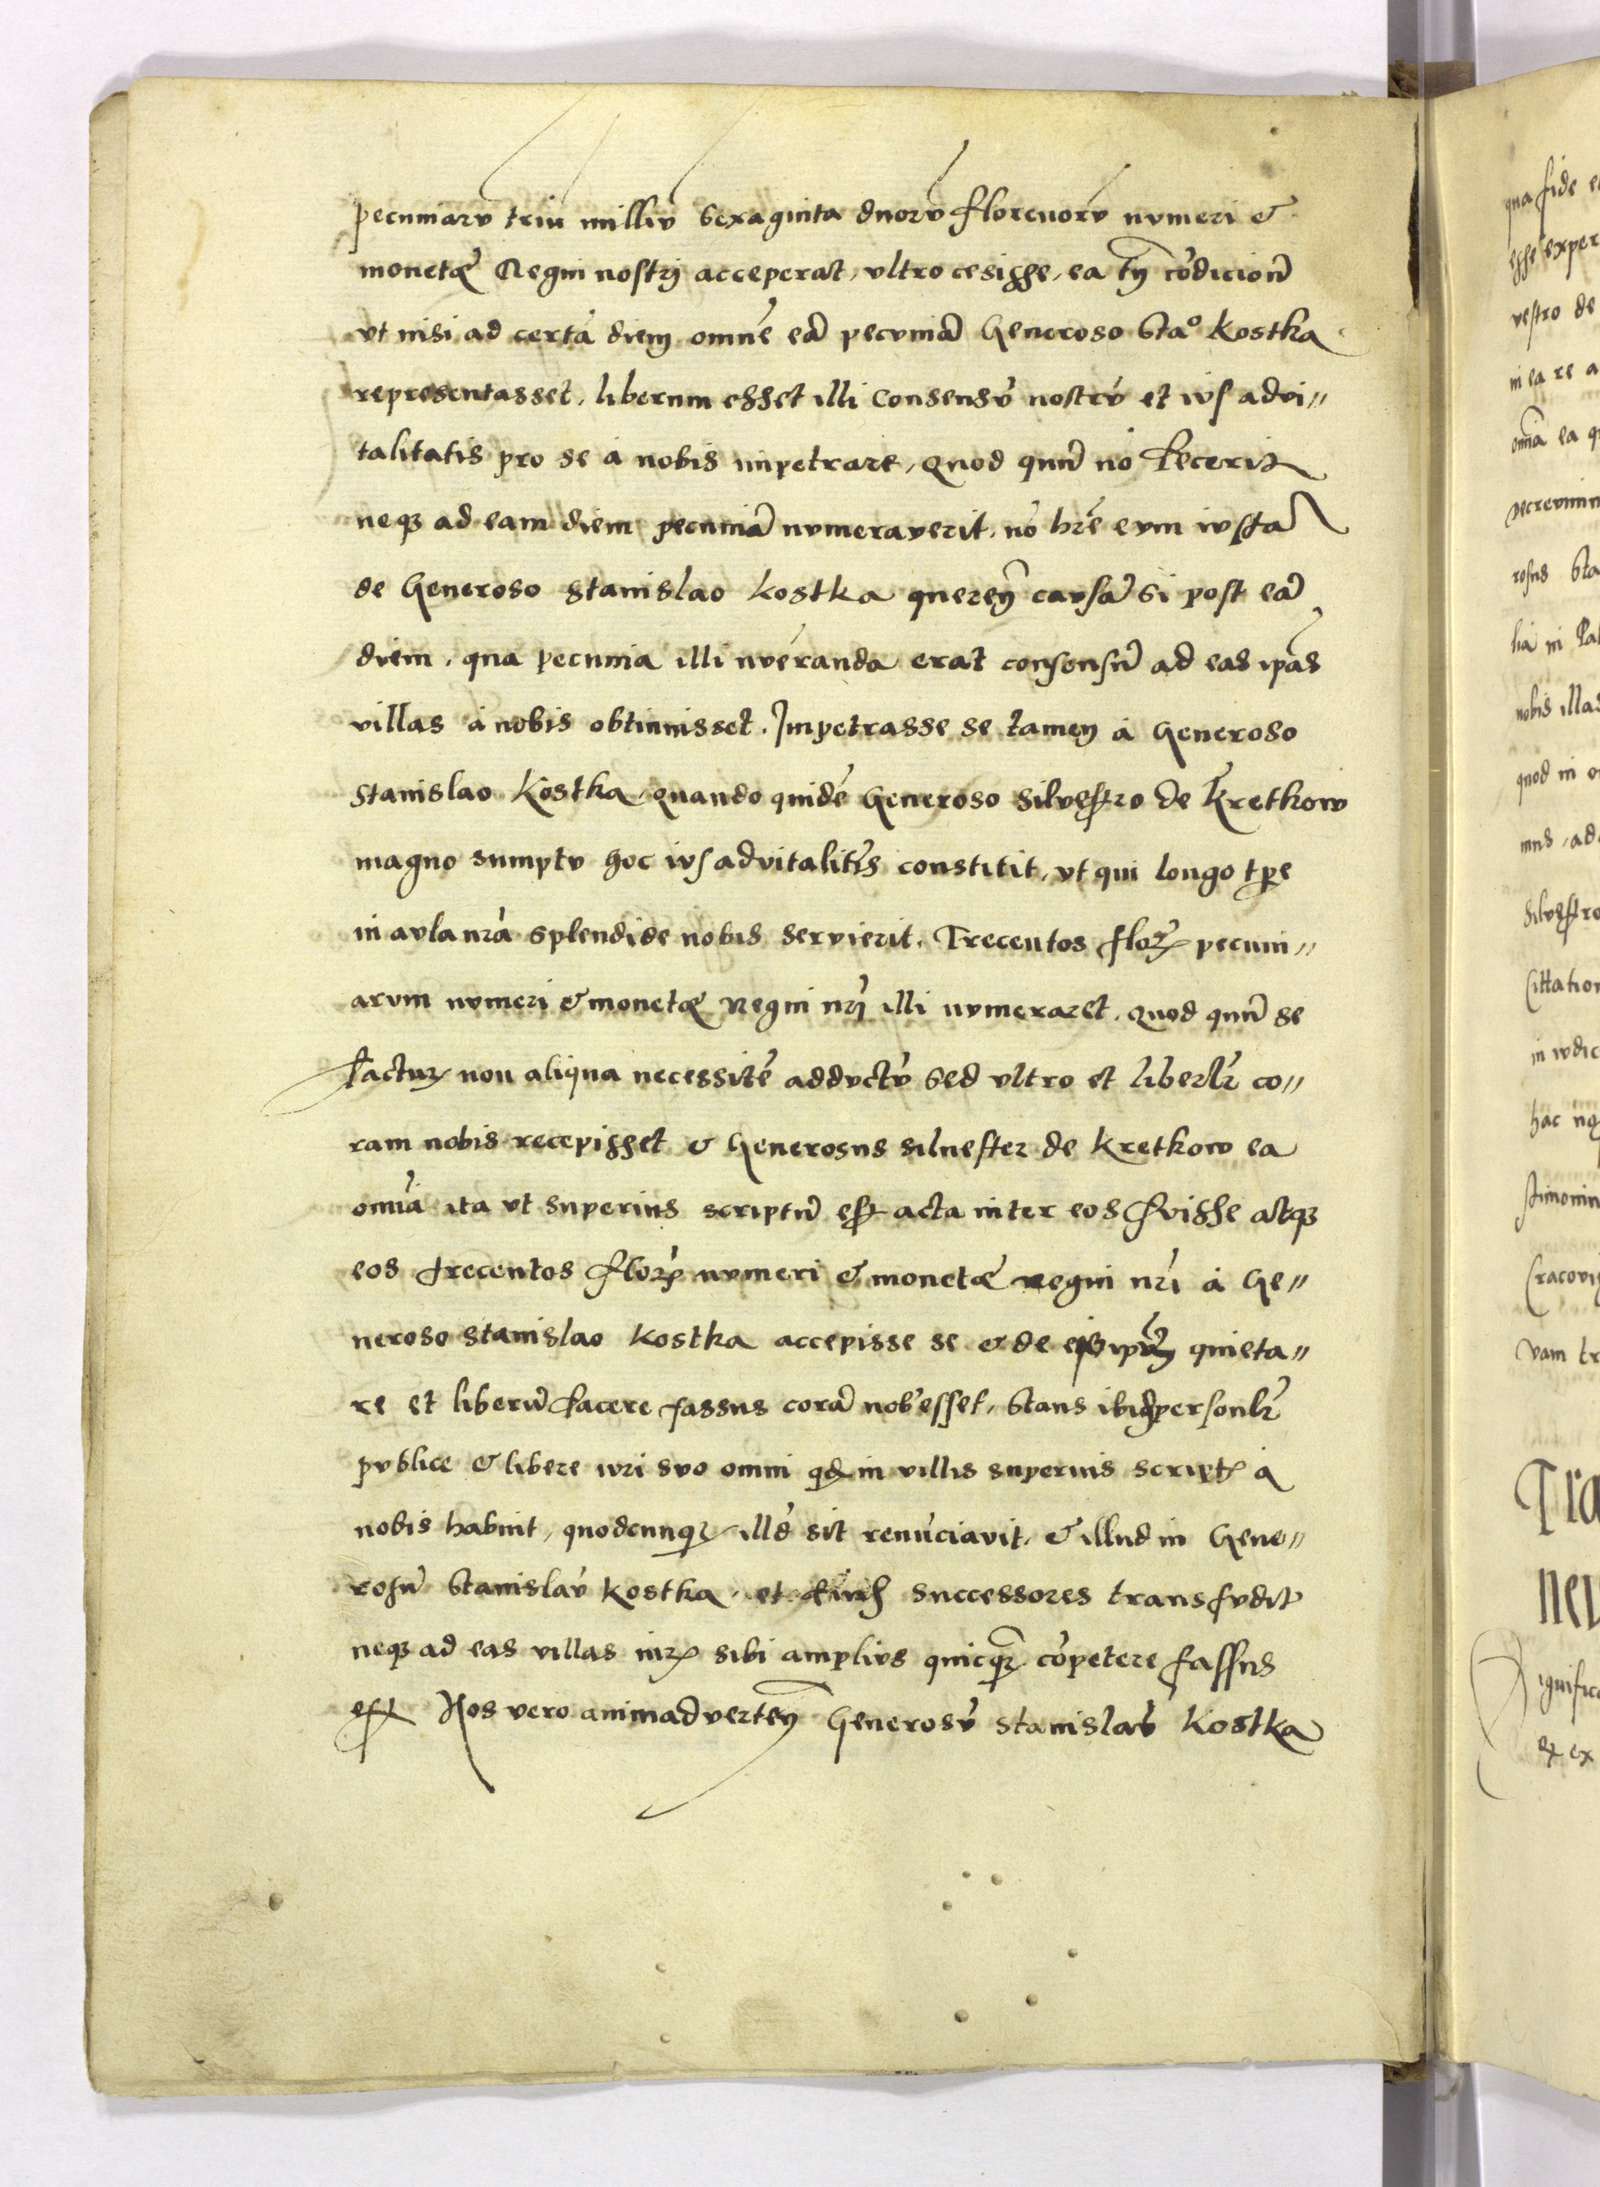 pecuniarū triū milliū sexaginta duorū florenorū numeri &
monetæ Regni nostrj acceperat, ultro cesisse, ea tñ cōdicionē
ut nisi ad certā diem omnē eā pecuniā Generoso Sta° Kostka
representasset, liberum esset illi consensū nostrū et ius advi„
talitatis pro se à nobis impetrare, quod quū nō fecerit
neqʒ ad eam diem pecuniā numeraverit, nō hrē eum iusta
de Generoso Stanislao Kostka querēn causā si post eā
diem, qua pecunia illi nūeranda erat consensū ad eas ipās
villas à nobis obtinuisset. Impetrasse se tamen à Generoso
Stanislao Kostka, quando quidē Generoso Silvestro de Kretkow
magno sumptu hoc ius advitalitīs constitit, ut qui longo tp̄e
in aula nrā splendide nobis servierit, Trecentos floꝝ pecuni„
arum numeri & monetæ Regni nrj̄ illi numeraret, quod quū se
factuꝝ non aliqua necessitē adductū sed ultro et liberlr̄ co„
ram nobis recepisset & Generosus Silvester de Kretkow ea
omīa ita ut superius scriptū est acta inter eos fuisse atqʒ
eos trecentos floꝝ numeri & monetæ regni nrī à Ge„
neroso Stanislao Kostka accepisse se & de eis ipm̄ quieta„
re et liberū facere fassus corā nob esset, stans ibidē personlr̄
publice & libere iuri suo omni qd̄ in villis superius script à
nobis habuit, quodcunqʒ illd̄ sit renūciavit, & illud in Gene„
rosū Stanislaū Kostka, et successores transfudit
neqʒ ad eas villas iuꝝ sibi amplius quicqʒ cōpetere fassus
est Nos vero animadverten̄ Generosū Stanislaū Kostka
qua fide
esse exper
vestro de
in ea re a
omīa ea q
decrevim
rosus Sta
lia in Pal
nobis illas
quod in
mus, ad
Silvestro
Cittation
in iudic
hac
stimoniu
Cracovi
vam tr
Tra
neu
ignific
et ex